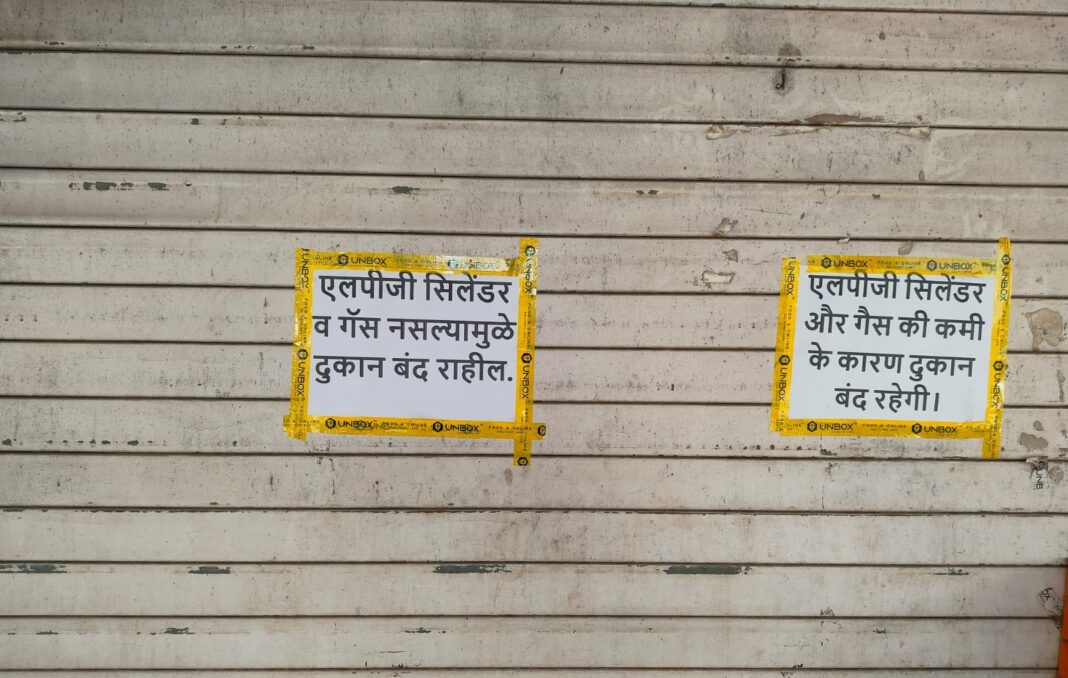 एलपीजी सिलेंडर
व गॅस नसल्यामुळे
दुकान बंद राहील.
एलपीजी सिलेंडर
और गैस की कमी
के कारण दुकान
बंद रहेगी।
UNBOX
UNBOX
UNBOX
UNBOX
UNBOX
UNBOX
UNBOX
UNBOX